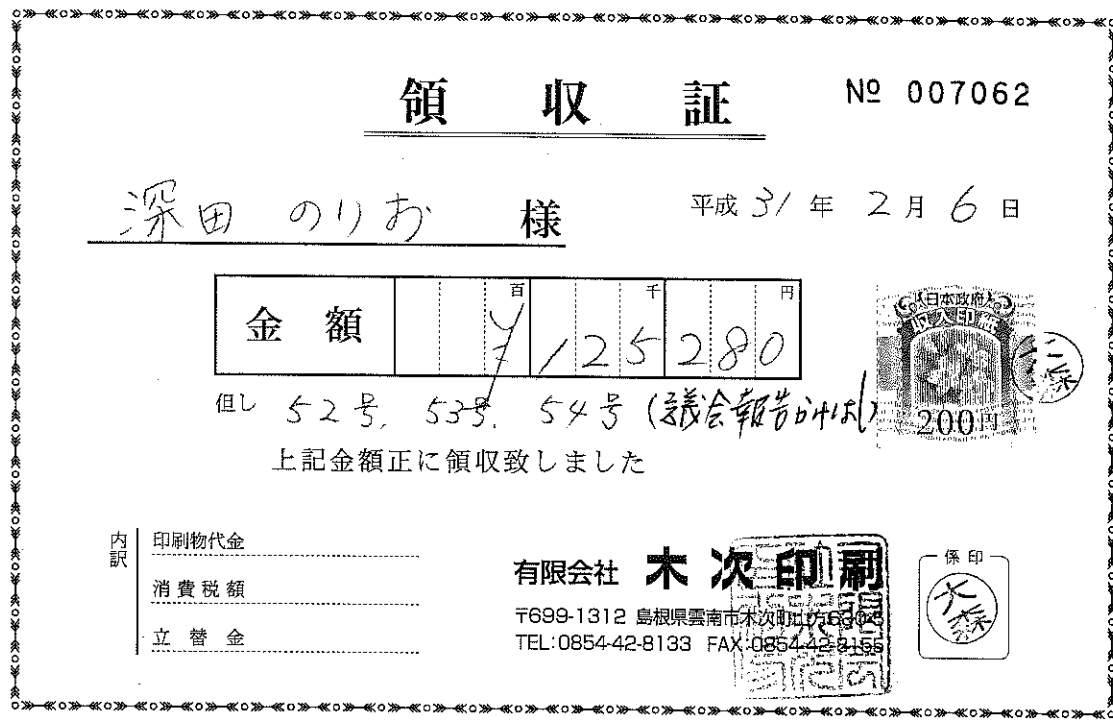 領収証 № 007062
深田 のりお 様 平成31年2月6日
金額 百 千 円
¥125280
但し 52号, 53号, 54号 (議会報告かけはし)
上記金額正に領収致しました
日本政府
収入印紙
200円
大塚
内訳
印刷物代金
消費税額
立替金
有限会社 木次印刷
〒699-1312 島根県雲南市木次町山方
TEL:0854-42-8133 FAX:0854-42-8155
係印
大塚